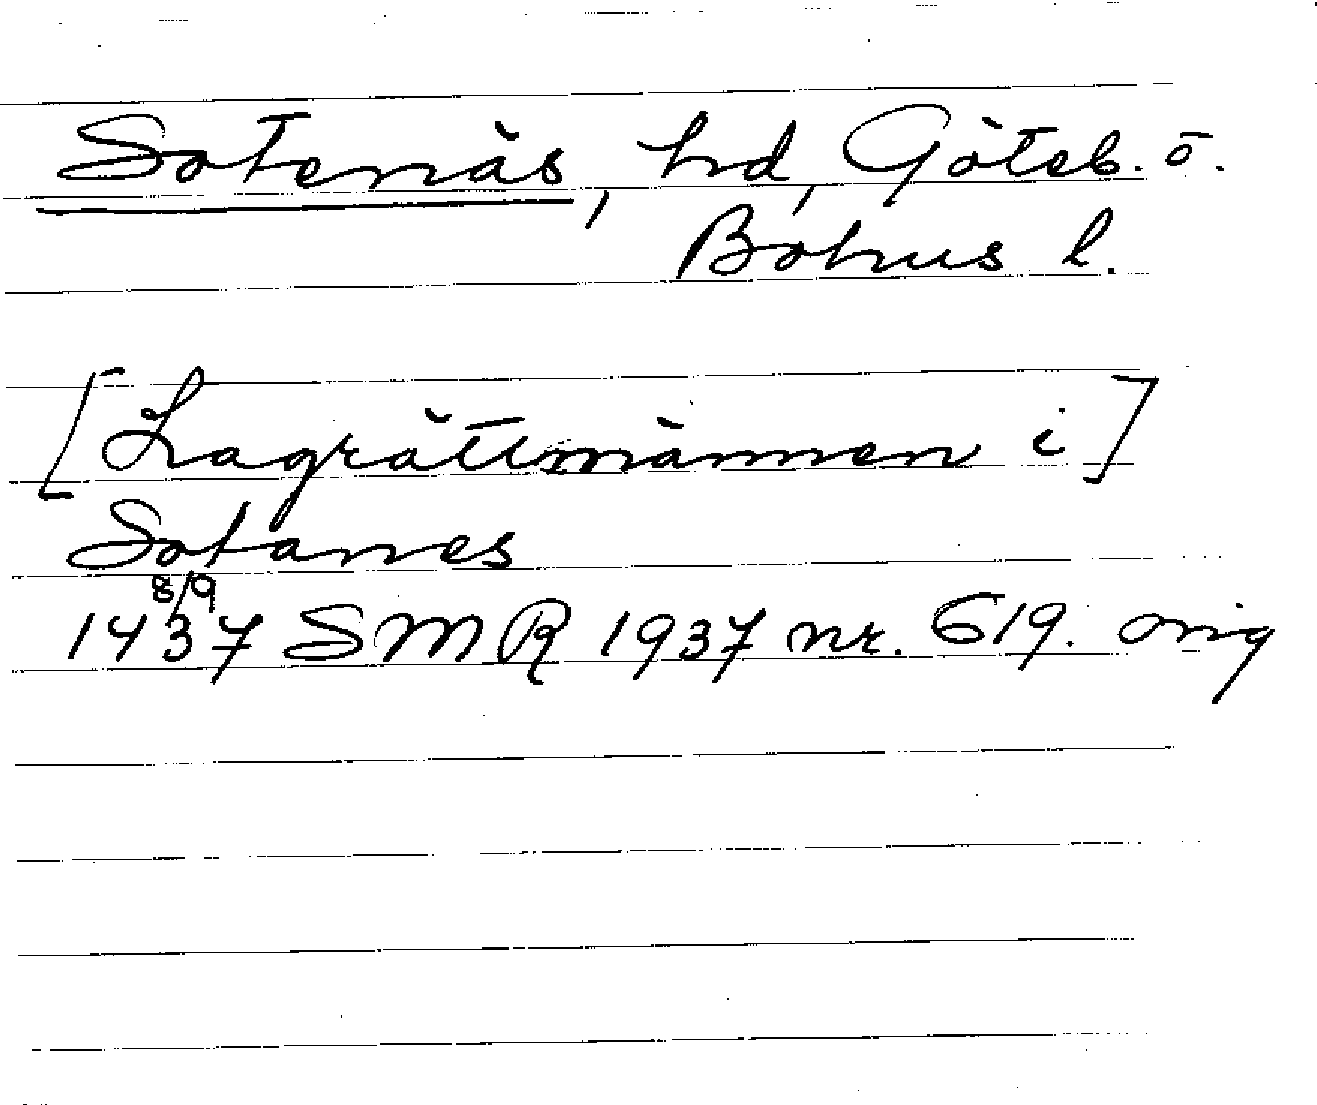 Sotenäs, hd, Göteb. o.
Bohus l.
[Lagrättmännen i]
Sotanes
8/9
1437 SMR 1937 nr. 619. orig